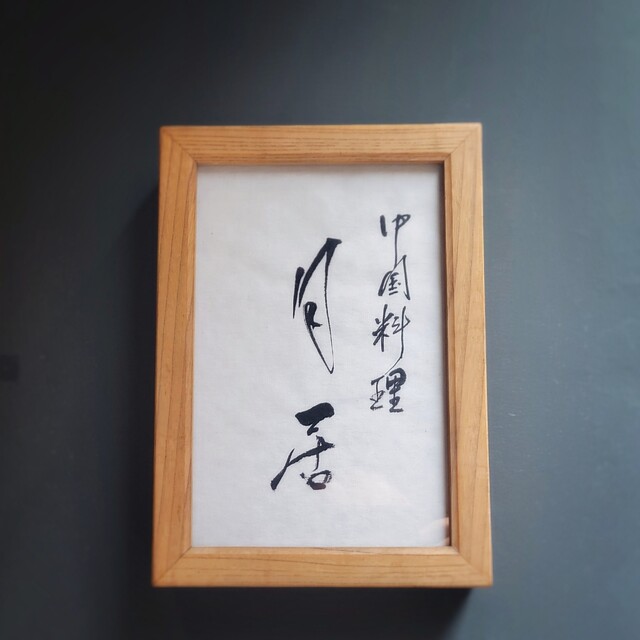 中国料理
月居